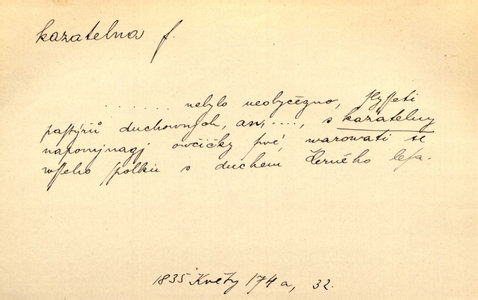 kazatelna f.
. . . . . . nebylo neobyčegno, slysseti
pastýřů duchowných, ani, ..., s kazatelny
napomjnagj owčičky swé, warowati se
wsseho spolku s duchem černého lesa.
1835 Květy 174 a, 32.